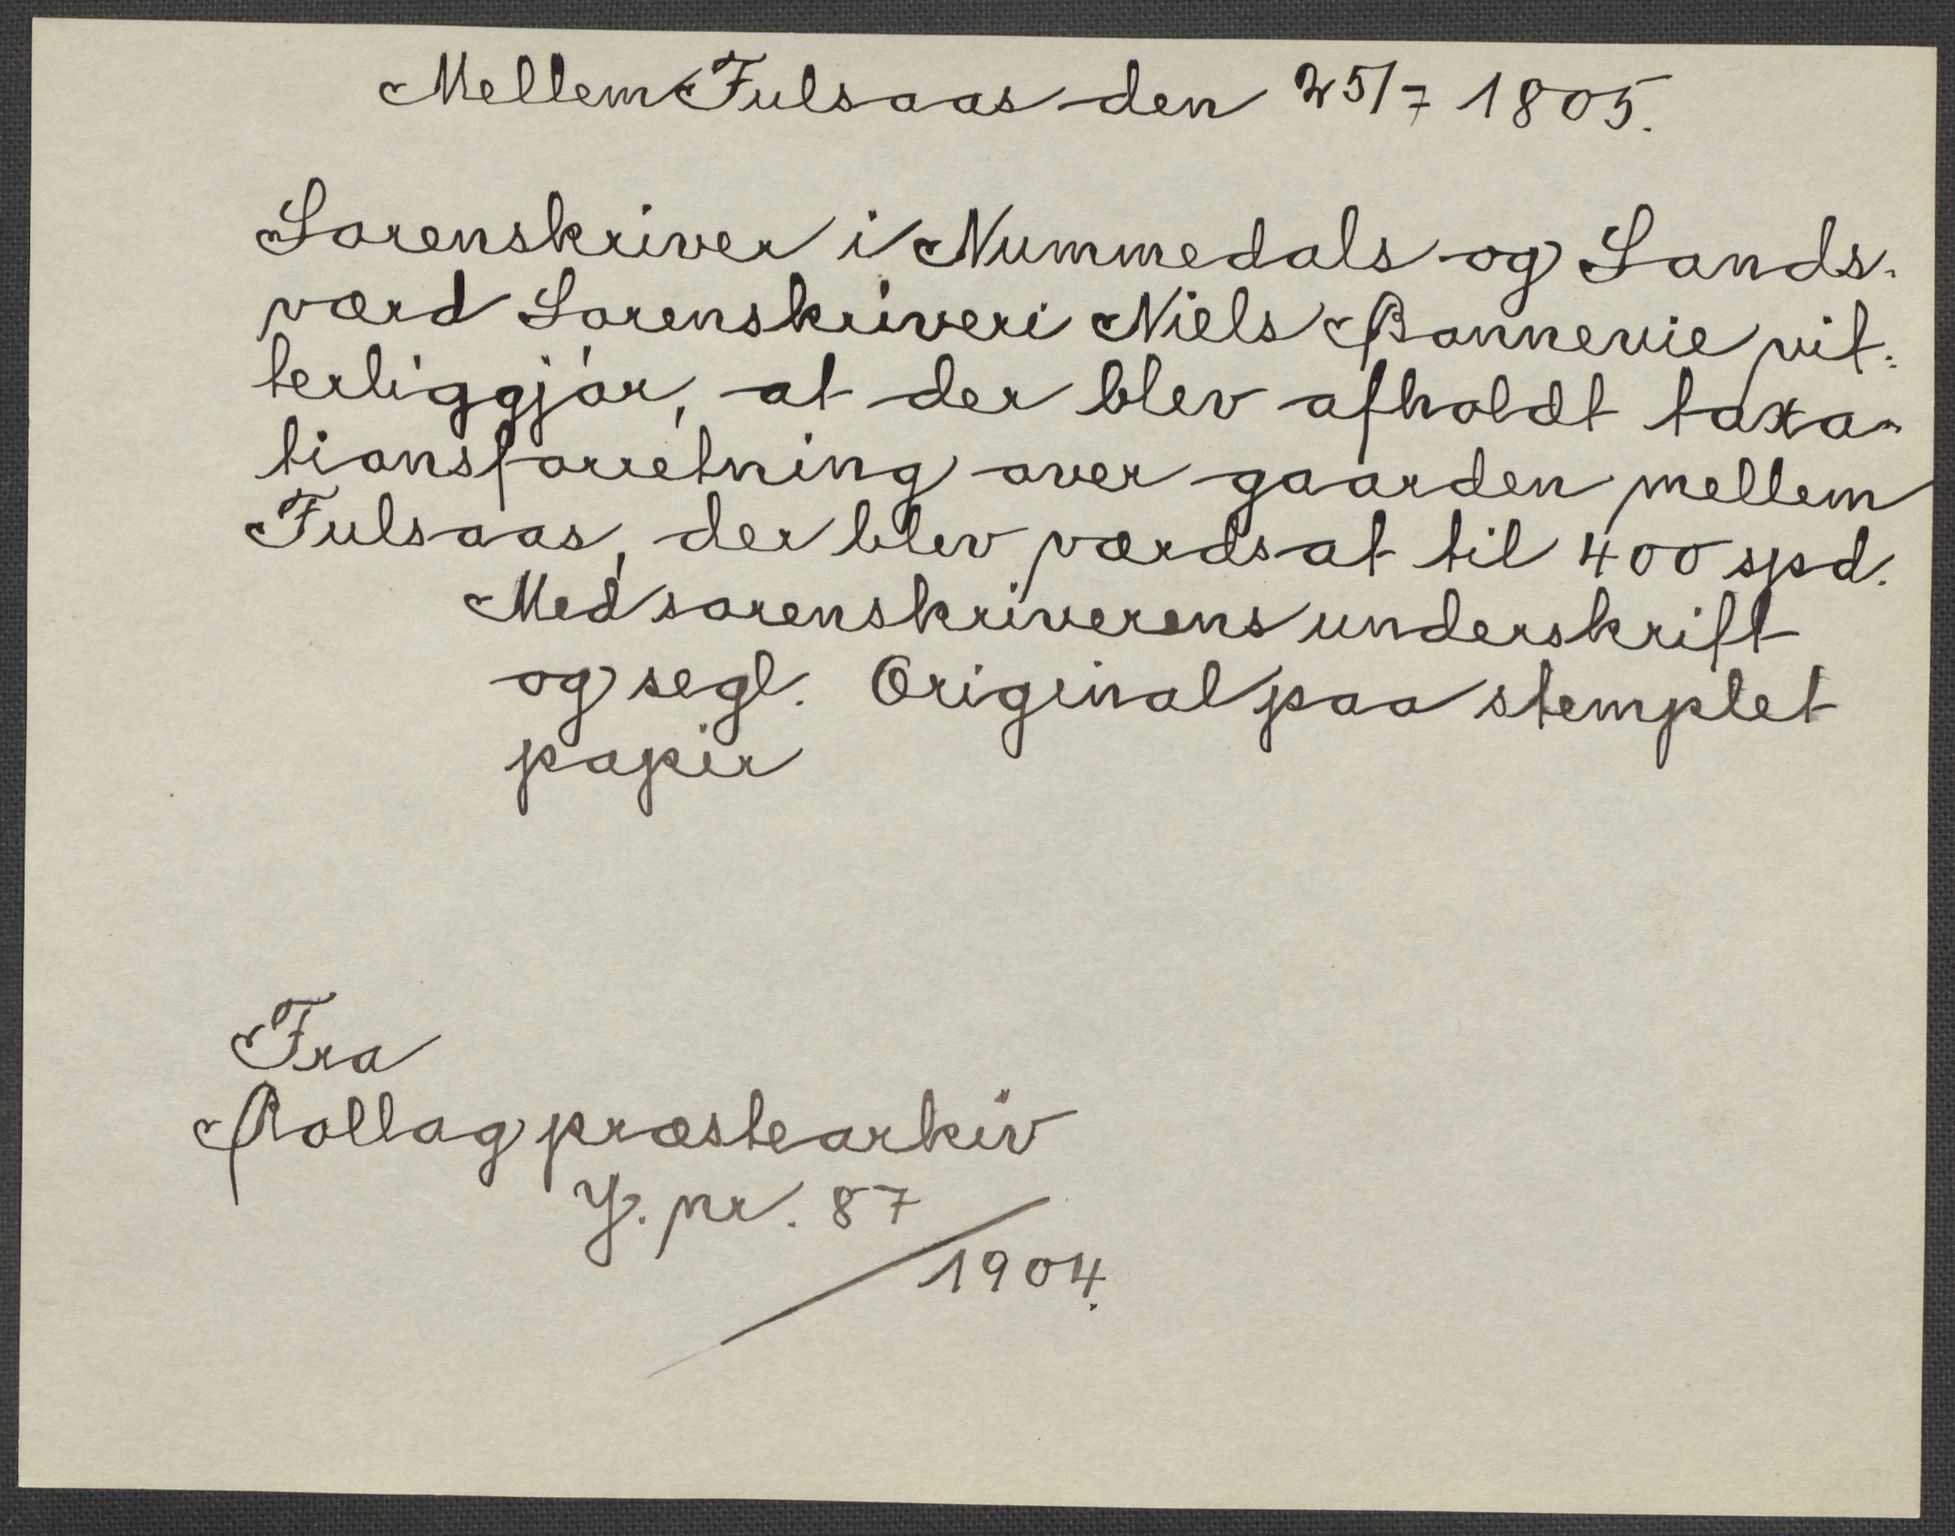 Mellem Fulsaas den 25/7 1805.
Sorenskriver i Nummedals og Sands-
værd Sorenskriveri Niels Bonnevie vit-
terliggjør, at der blev afholdt taxa-
tionsforretning over gaarden mellem
Fulsaas, der blev værdsat til 400 spd.
Med sorenskriverens underskrift
og segl. Original paa stemplet
papir
Fra
Rollag præstearkiv
J. nr. 87/1904.